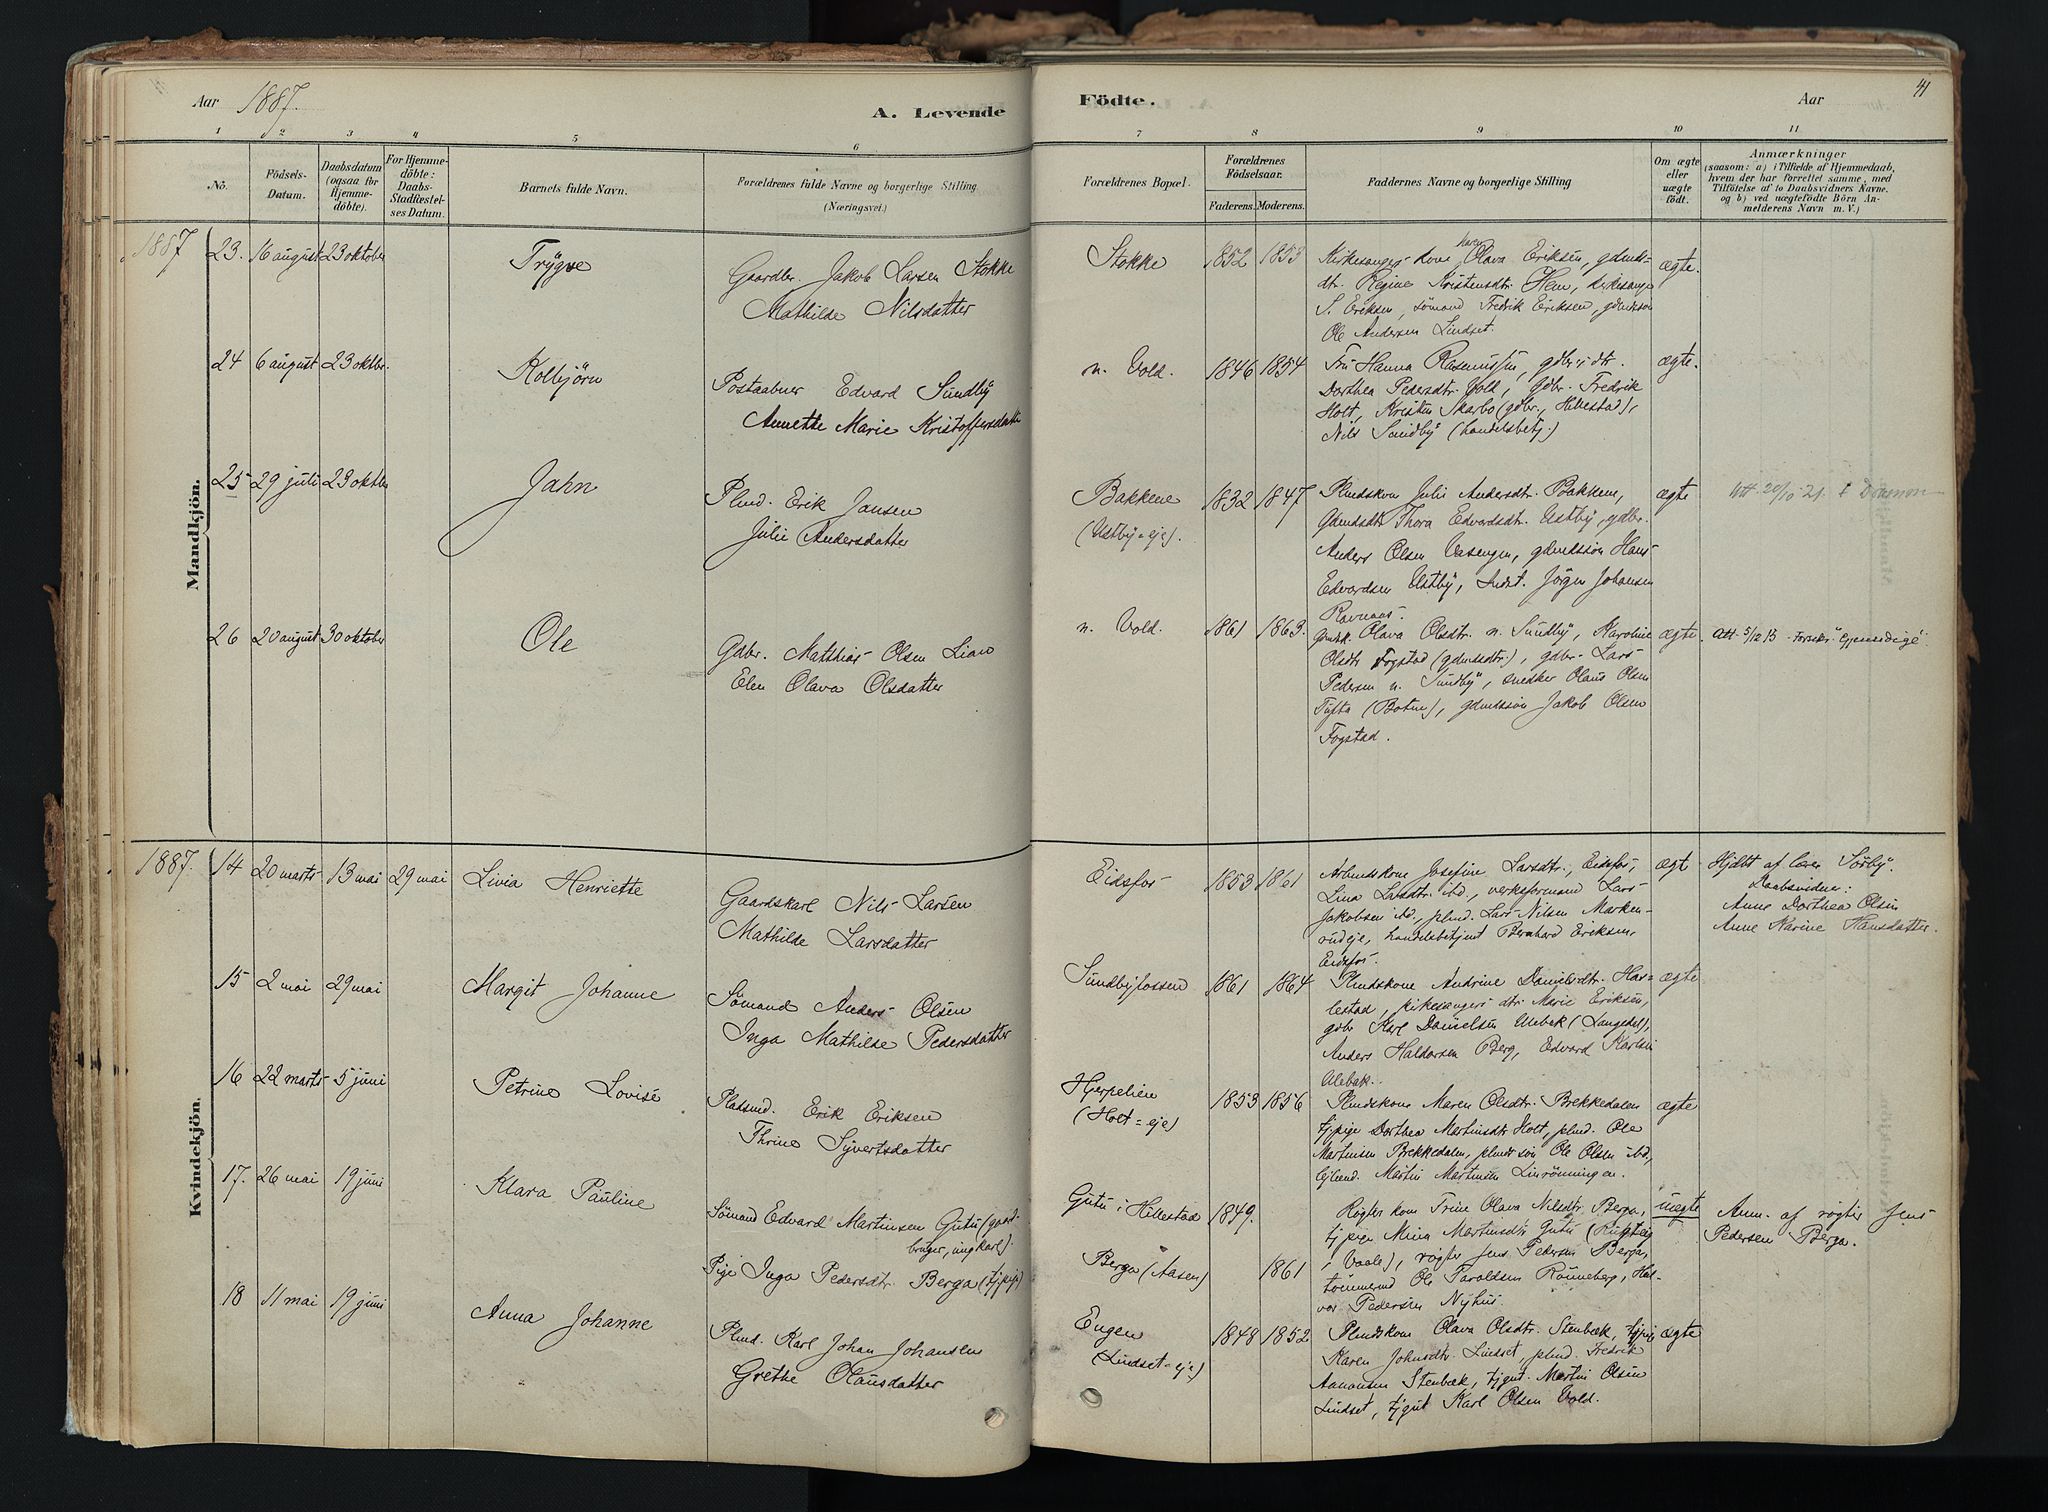 Aar 1887.
A. Levende
Födte.
Aar
41
1 2 3 4 5 6 7 8 9 10 11
No.
Födsels-
Datum.
Daabsdatum
(ogsaa for
Hjemme-
döbte).
For Hjemme-
döbte:
Daabs-
Stadfæstel-
ses Datum.
Barnets fulde Navn.
Forældrenes fulde Navne og borgerlige Stilling
(Næringsvei.)
Forældrenes Bopæl.
Forældrenes
Födselsaar.
Faderens. Moderens.
Faddernes Navne og borgerlige Stilling
Om ægte
eller
uægte
födt.
Anmærkninger
(saasom: a) i Tilfælde af Hjemmedaab,
hvem der har forrettet samme, med
Tilföielse af to Daabsvidners Navne.
og b) ved uægtefödte Börn An-
melderens Navn m. V.)
Mandkjön.
1887
23. 16 august 23 oktober
Trygve
Gaardbr. Jakob Larsen Stokke
Mathilde Nilsdatter
Stokke
1852 1853
Kirkesanger kone Karen Olava Eriksen, gdmds=
dtr. Regine Kristensdtr. Hem, kirkesanger
S. Eriksen, sömand Fredrik Eriksen, gdmdssön
Ole Andersen Lindset.
ægte.
24 6 august 23 oktbr.
Kolbjörn
Postaabner Edvard Sundby
Annette Marie Kristoffersdatter
n. Vold.
1846 1854
Fru Hanna Rasmussen, gdbr.s dtr.
Dorthea Pedersdtr. Vold, gdbr. Fredrik
Holt, Kristen Skarbo (gdbr., Hillestad),
Nils Sundby (handelsbetj.)
ægte.
25 29 juli 23 oktbr
Jahn
Plmd. Erik Jansen
Julie Andersdatter
Bakkene
(Ustby=eje).
1832 1847
Plmdskone Julie Andersdtr. Bakkene,
Gdmdsdtr Thora Edvardsdtr. Ustby, gdbr.
Anders Olsen Vasengen, gdmdssön Hans
Edvardsen Ustby, Indst. Jörgen Johansen
Ravnaas.
ægte
Att 20/10 21.
26 20 august 30 oktober
Ole
Gdbr. Matthias Olsen Lian
Elen Olava Olsdatter
n. Vold.
1861 1863.
Olava Olsdtr. n. Sundby, Karoline
Olsdtr Fogstad (gdmdsdtr.), gdbr. Lars
Pedersen n. Sundby, snedker Olaus Olsen
Tufta (Botne), gdmdssön Jakob Olsen
Fogstad.
ægte
Att. 5/12 15
Kvindekjön.
1887.
14 20 marts 13 mai 29 mai
Livia Henriette
Gaardskarl Nils Larsen
Mathilde Larsdatter
Eidsfos
1853 1861
Arbmdskone Josefine Larsdtr., Eidsfos,
Lina Larsdtr. ibd., verksformand Lars
Jakobsen ibd., plmd. Lars Nilsen Marken-
rudeje, handelsbetjent Bernhard Eriksen,
Eidsfos.
ægt
Hjdbt af lærer Sörby.
Daabsvidner:
Anne Dorthea Olsen
Anne Karine Hansdatter.
15 2 mai 29 mai
Margit Johanne
Sömand Anders Olsen
Inga Mathilde Pedersdatter
Sundbyfossen
1861 1864
Plmdskone Andrine Danielsdtr. Har=
lestad, kirkesangers dtr. Marie Eriksen,
gdbr Karl Danielsen Ulebek (Langedal),
Anders Haldorsen Berg, Edvard Karlsen
Ulebæk.
ægte
16 22 marts 5 juni
Petrine Lovise
Pladsmd. Erik Eriksen
Thrine Syvertsdatter
Hjerpelien
(Holt=eje)
1853 1856
Plmdskone Maren Olsdtr. Brekkedalen
tjpige Dorthea Martinsdtr Holt, plmd. Ole
Martinsen Brekkedalen, plmdssön Ole Olsen ibd,
Martin Martinsen Linrönningen.
ægte
17. 26 mai 19 juni
Klara Pauline
Sömand Edvard Martinsen Gutu (gaard-
bruger, ungkarl).
Pige Inga Pedersdtr. Berga (tjpige)
Gutu i Hillestad
Berga (Aasen)
1849.
1861
Rögter kone Trine Olava Nilsdtr. Berga,
tjpige Mina Martinsdtr Gutu
i Vaale), rögter Jens Pedersen Berga,
tömmermd Ole Paroldsen Rönneberg, Hal-
vor Pedersen Nyhus.
uægte
Anm. af rögter Jens
Pedersen Berga.
18 11 mai 19 juni
Anna Johanne
Plmd. Karl Johan Johansen
Grethe Olausdatter
Engen
(Lindset=eje)
1848 1852
Plmdskone Olava Olsdtr. Stenbæk, tjpige
Karen Johnsdtr. Lindset, plmd. Fredrik
Aanonsen Stenbæk, tjgut. Martin Olsen
Lindset, tjgut Karl Olsen Vold.
ægte